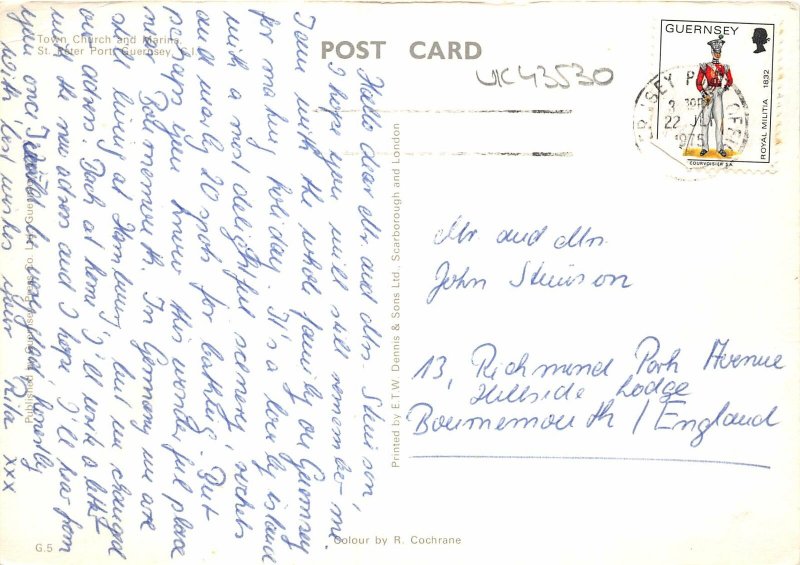 POST CARD
Town Church and Marina
St. Peter Port, Guernsey, C.I.
UK43530
GUERNSEY
ROYAL MILITIA 1832
COURVOISIER S.A.
22 JLY
1975
Hello dear Mr and Mrs. Stimson,
I hope you will still remember me.
I am with the whole family on Guernsey
for making holiday. It's a lovely island
with a most delightful scenery,
and lovely spots for bathing. But
perhaps you know this wonderful place
near Bournemouth. In Germany we are
still living at Hamburg, but we changed
our across. Back at home I'll write a letter
with the new across and I hope I'll hear from
you once. I would be very glad, honestly
With best wishes your Rita xxx
Mr and Mrs
John Stimson
13, Richmond Park Avenue
Hillside Lodge
Bournemouth / England
Printed by E.T.W. Dennis & Sons Ltd., Scarborough and London
Published by Guernsey Press Co. Ltd., Guernsey
G.5
Colour by R. Cochrane